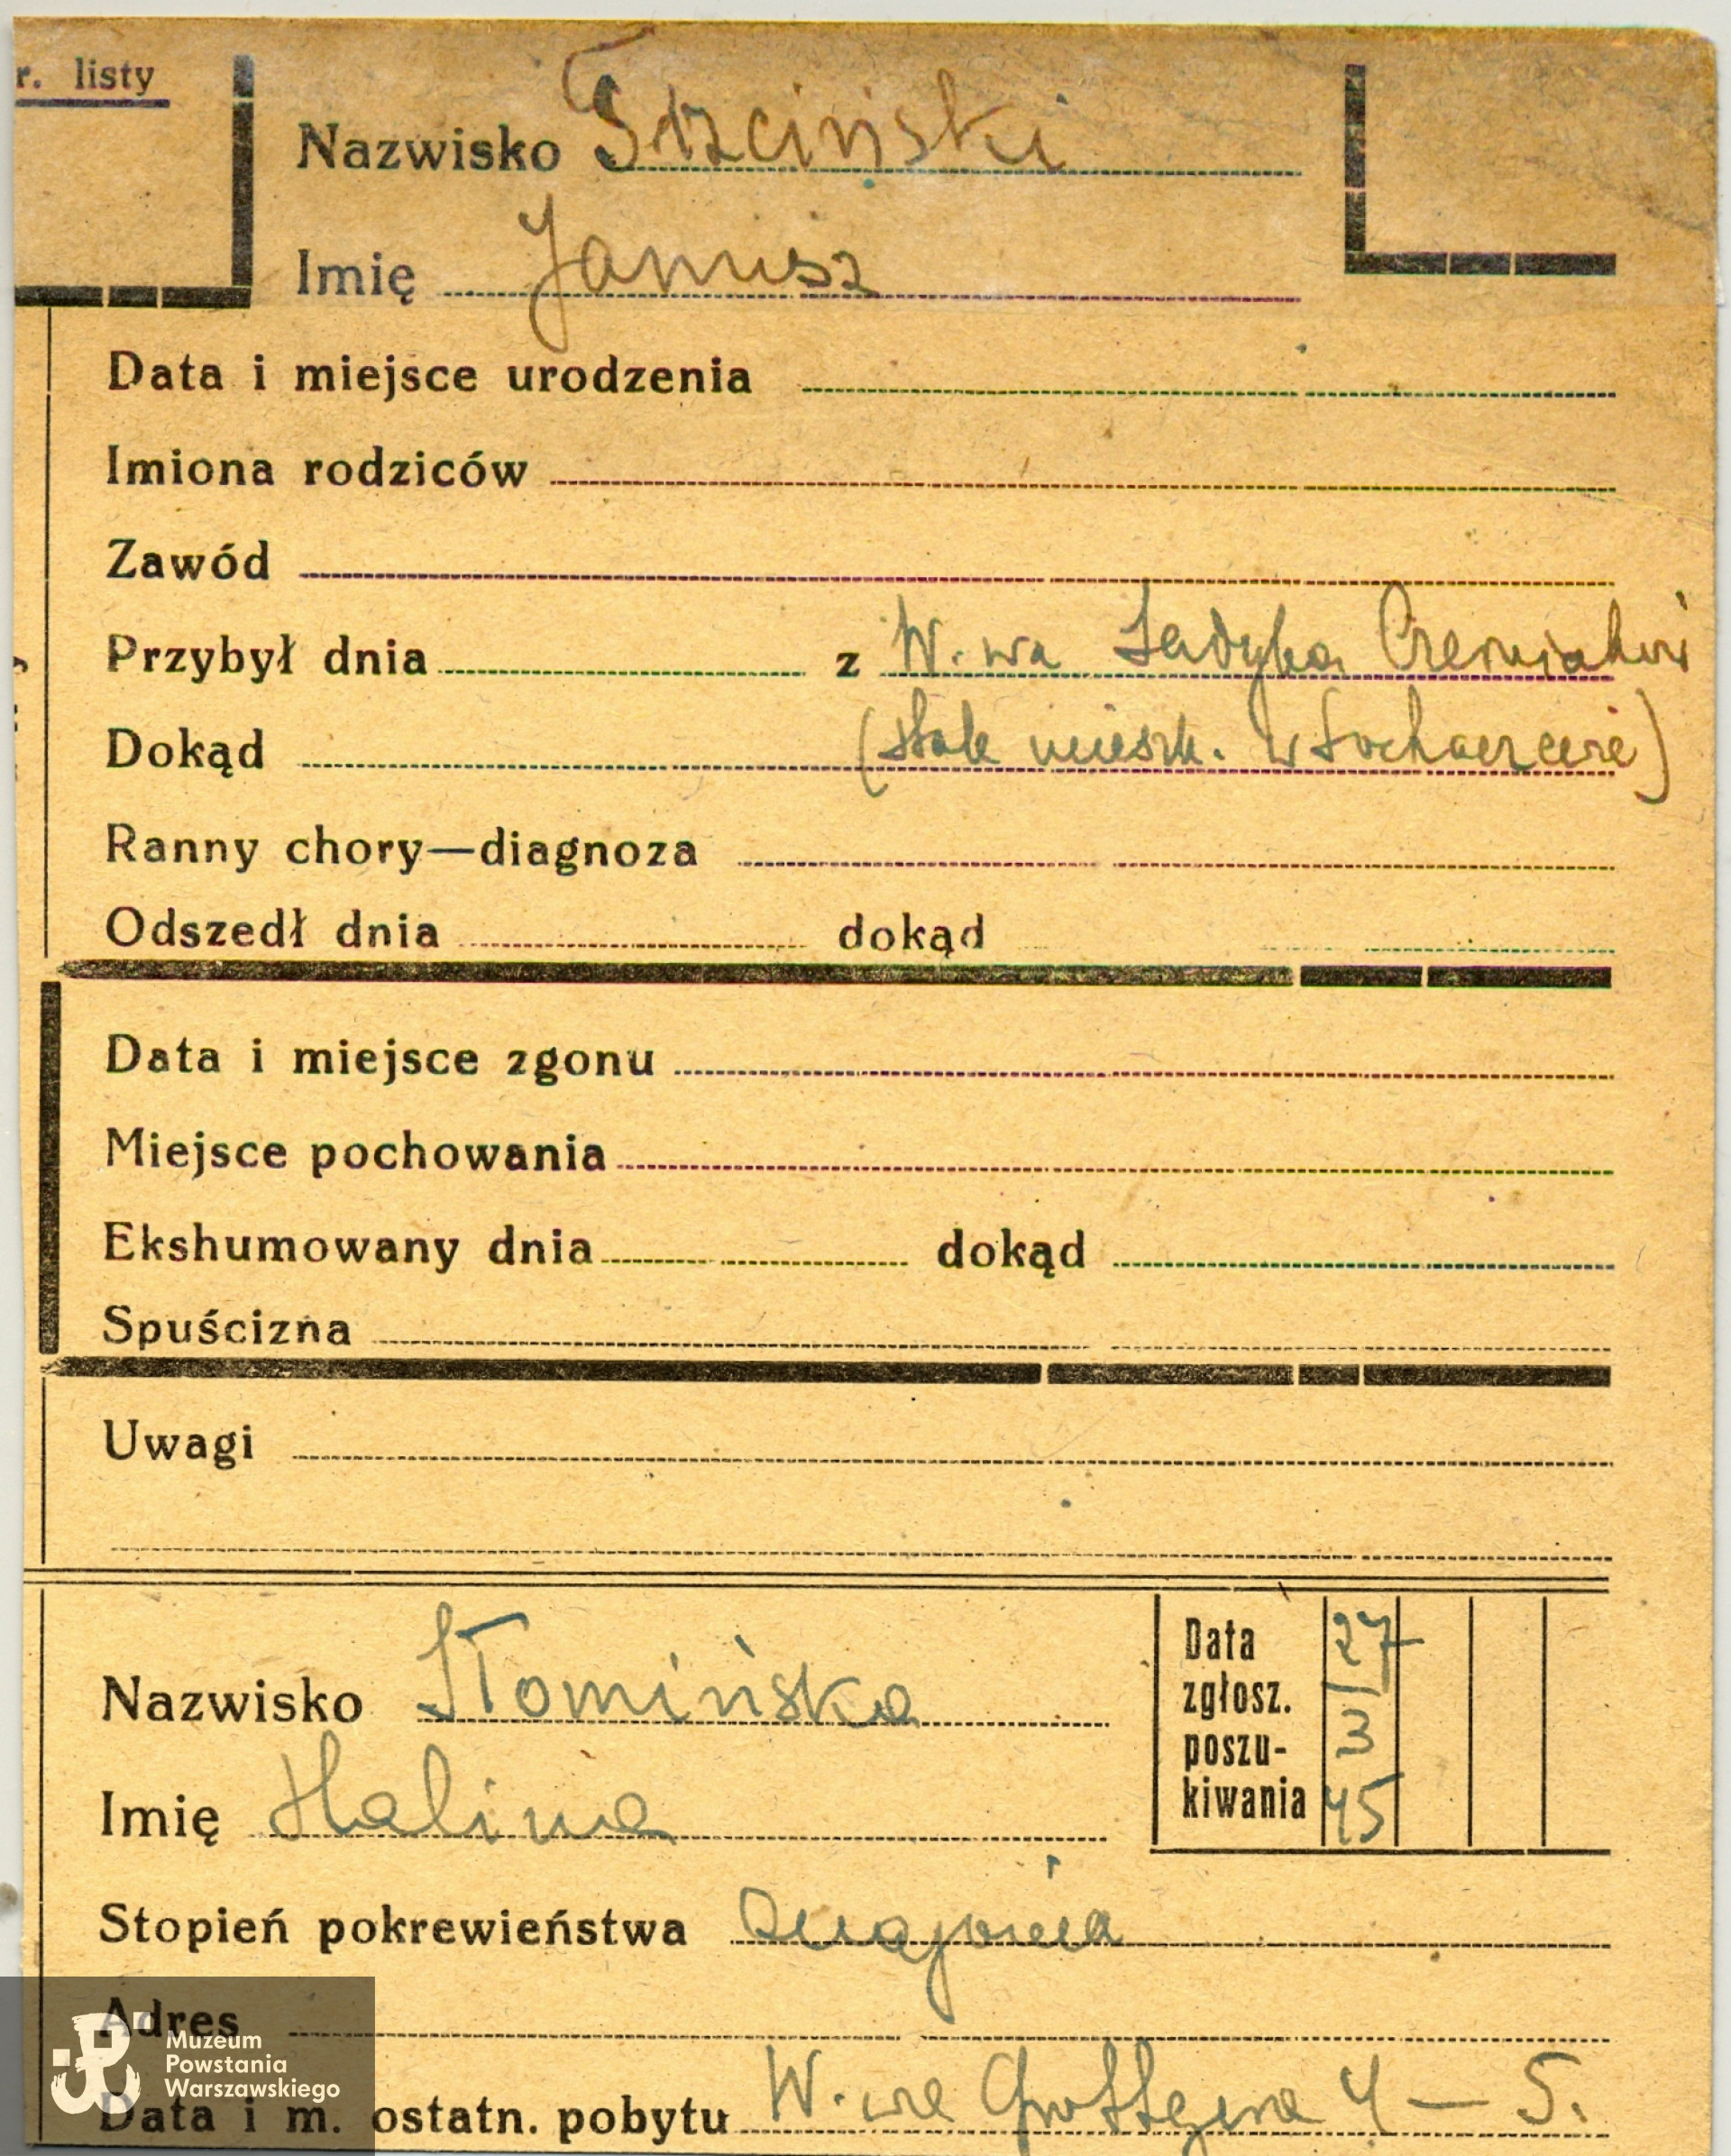 r. listy
Nazwisko Trzciński
Imię Janusz
Data i miejsce urodzenia
Imiona rodziców
Zawód
Przybył dnia z W-wa Sadyba Czerniakowi
Dokąd (stale mieszk. w Sochaczewie)
Ranny chory—diagnoza
Odszedł dnia dokąd
Data i miejsce zgonu
Miejsce pochowania
Ekshumowany dnia dokąd
Spuścizna
Uwagi
Nazwisko Słomińska
Imię Halina
Data zgłosz. poszukiwania 27/3 45
Stopień pokrewieństwa znajoma
Adres
Muzeum
Powstania
Warszawskiego
Data i m. ostatn. pobytu W-wa 4 — 5.